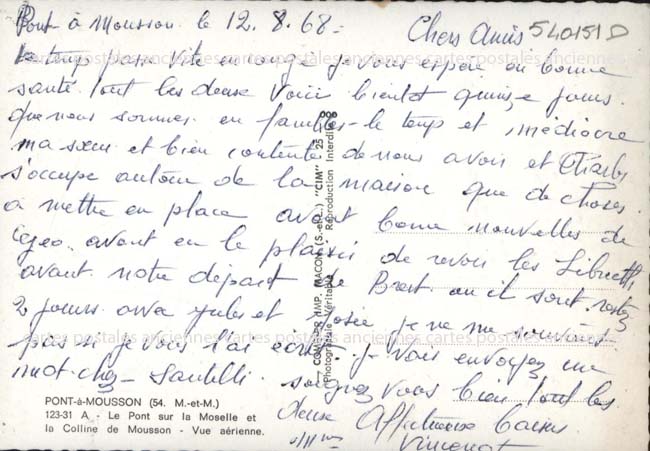 Pont-à Mousson. le 12. 8. 68 =
Chers Amis 540151D
le temp passe vite en congé je vous espère en bonne
santé tout les deux voici bientôt quinze jours
que nous sommes en familles - le temp et médiocre
ma sœur et bien contente de nous avoir et Charles
s'occupe autour de la maison que de choses
à mettre en place avant bonne nouvelles de
Geo. avant eu le plaisir de revoir les
avant notre départ de Brest ou il sont restez
2 jours avec Jules et Josée je ne me souviens
pas si je vous l'ai écrit. je vous envoyez un
mot chez - soignez vous bien tout les
deux Affectueux baisers
Vincent
COMBIER IMP. MACON (S.-et-L.) "CIM"
Photographie Véritable - Reproduction Interdite
25
cartes postales anciennes cartes postales anciennes cartes postales anciennes
PONT-à-MOUSSON (54. M.-et-M.)
123-31 A - Le Pont sur la Moselle et
la Colline de Mousson - Vue aérienne.